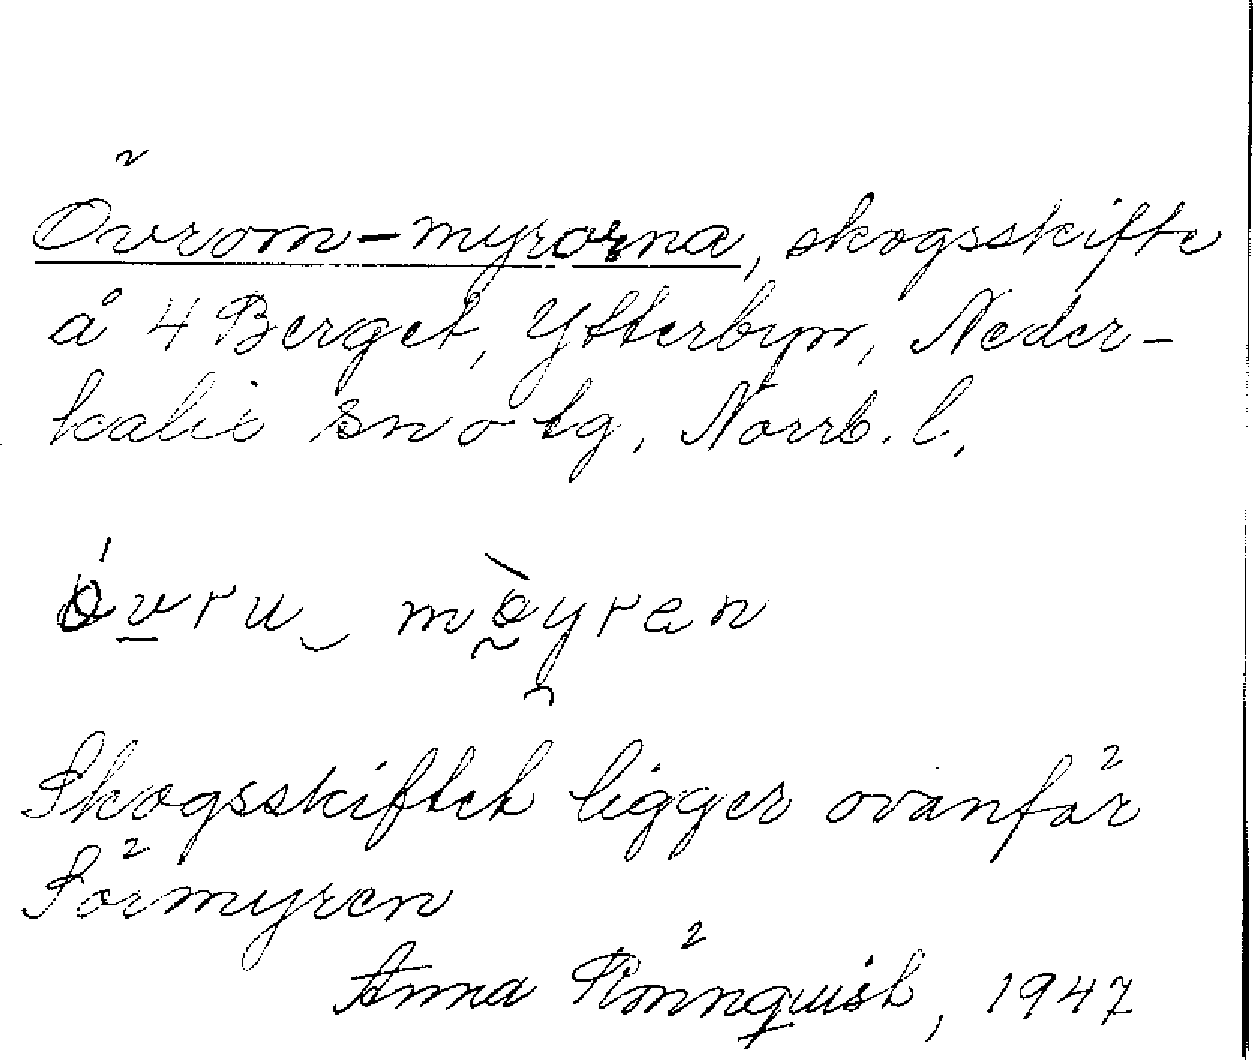 Övrom-myrorna, skogsskifte
å 4 Berget, Ytterbyn, Neder-
kalix sn o tg, Norrb. l.
Skogsskiftet ligger ovanför
Sörmyren
Anna Rönnquist, 1947